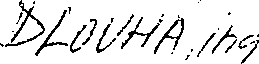 DLOUHÁ, Ing